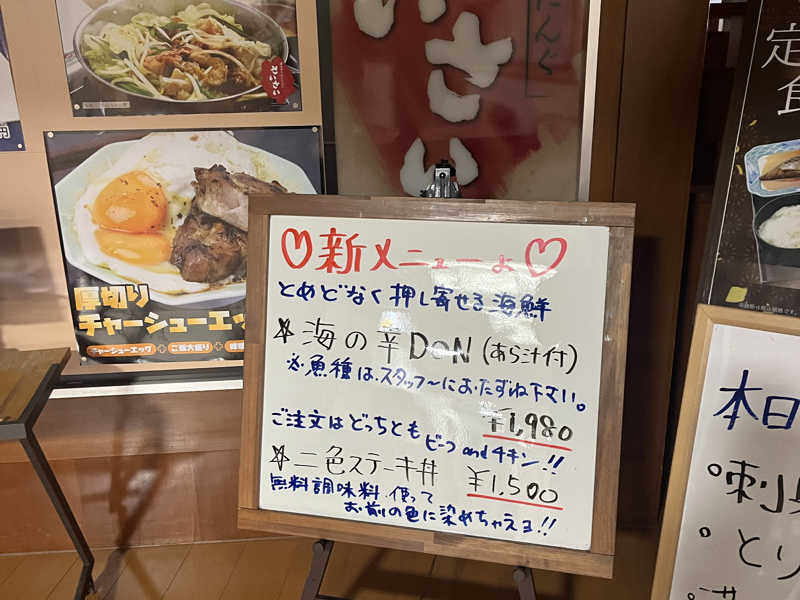 ♡新メニューょ♡
とめどなく押し寄せる海鮮
☆海の幸DON(あら汁付)
※魚種はスタッフ〜におたずね下さい。
¥1,980
ご注文はどっちとも
ビーフandチキン!!
☆二色ステーキ丼 ¥1,500
無料調味料、使って
お前の色に染めちゃえヨ!!
厚切り
チャーシューエッ
チャーシューエッグ + ご飯大盛り +
さい
定
食
本日
刺
とり